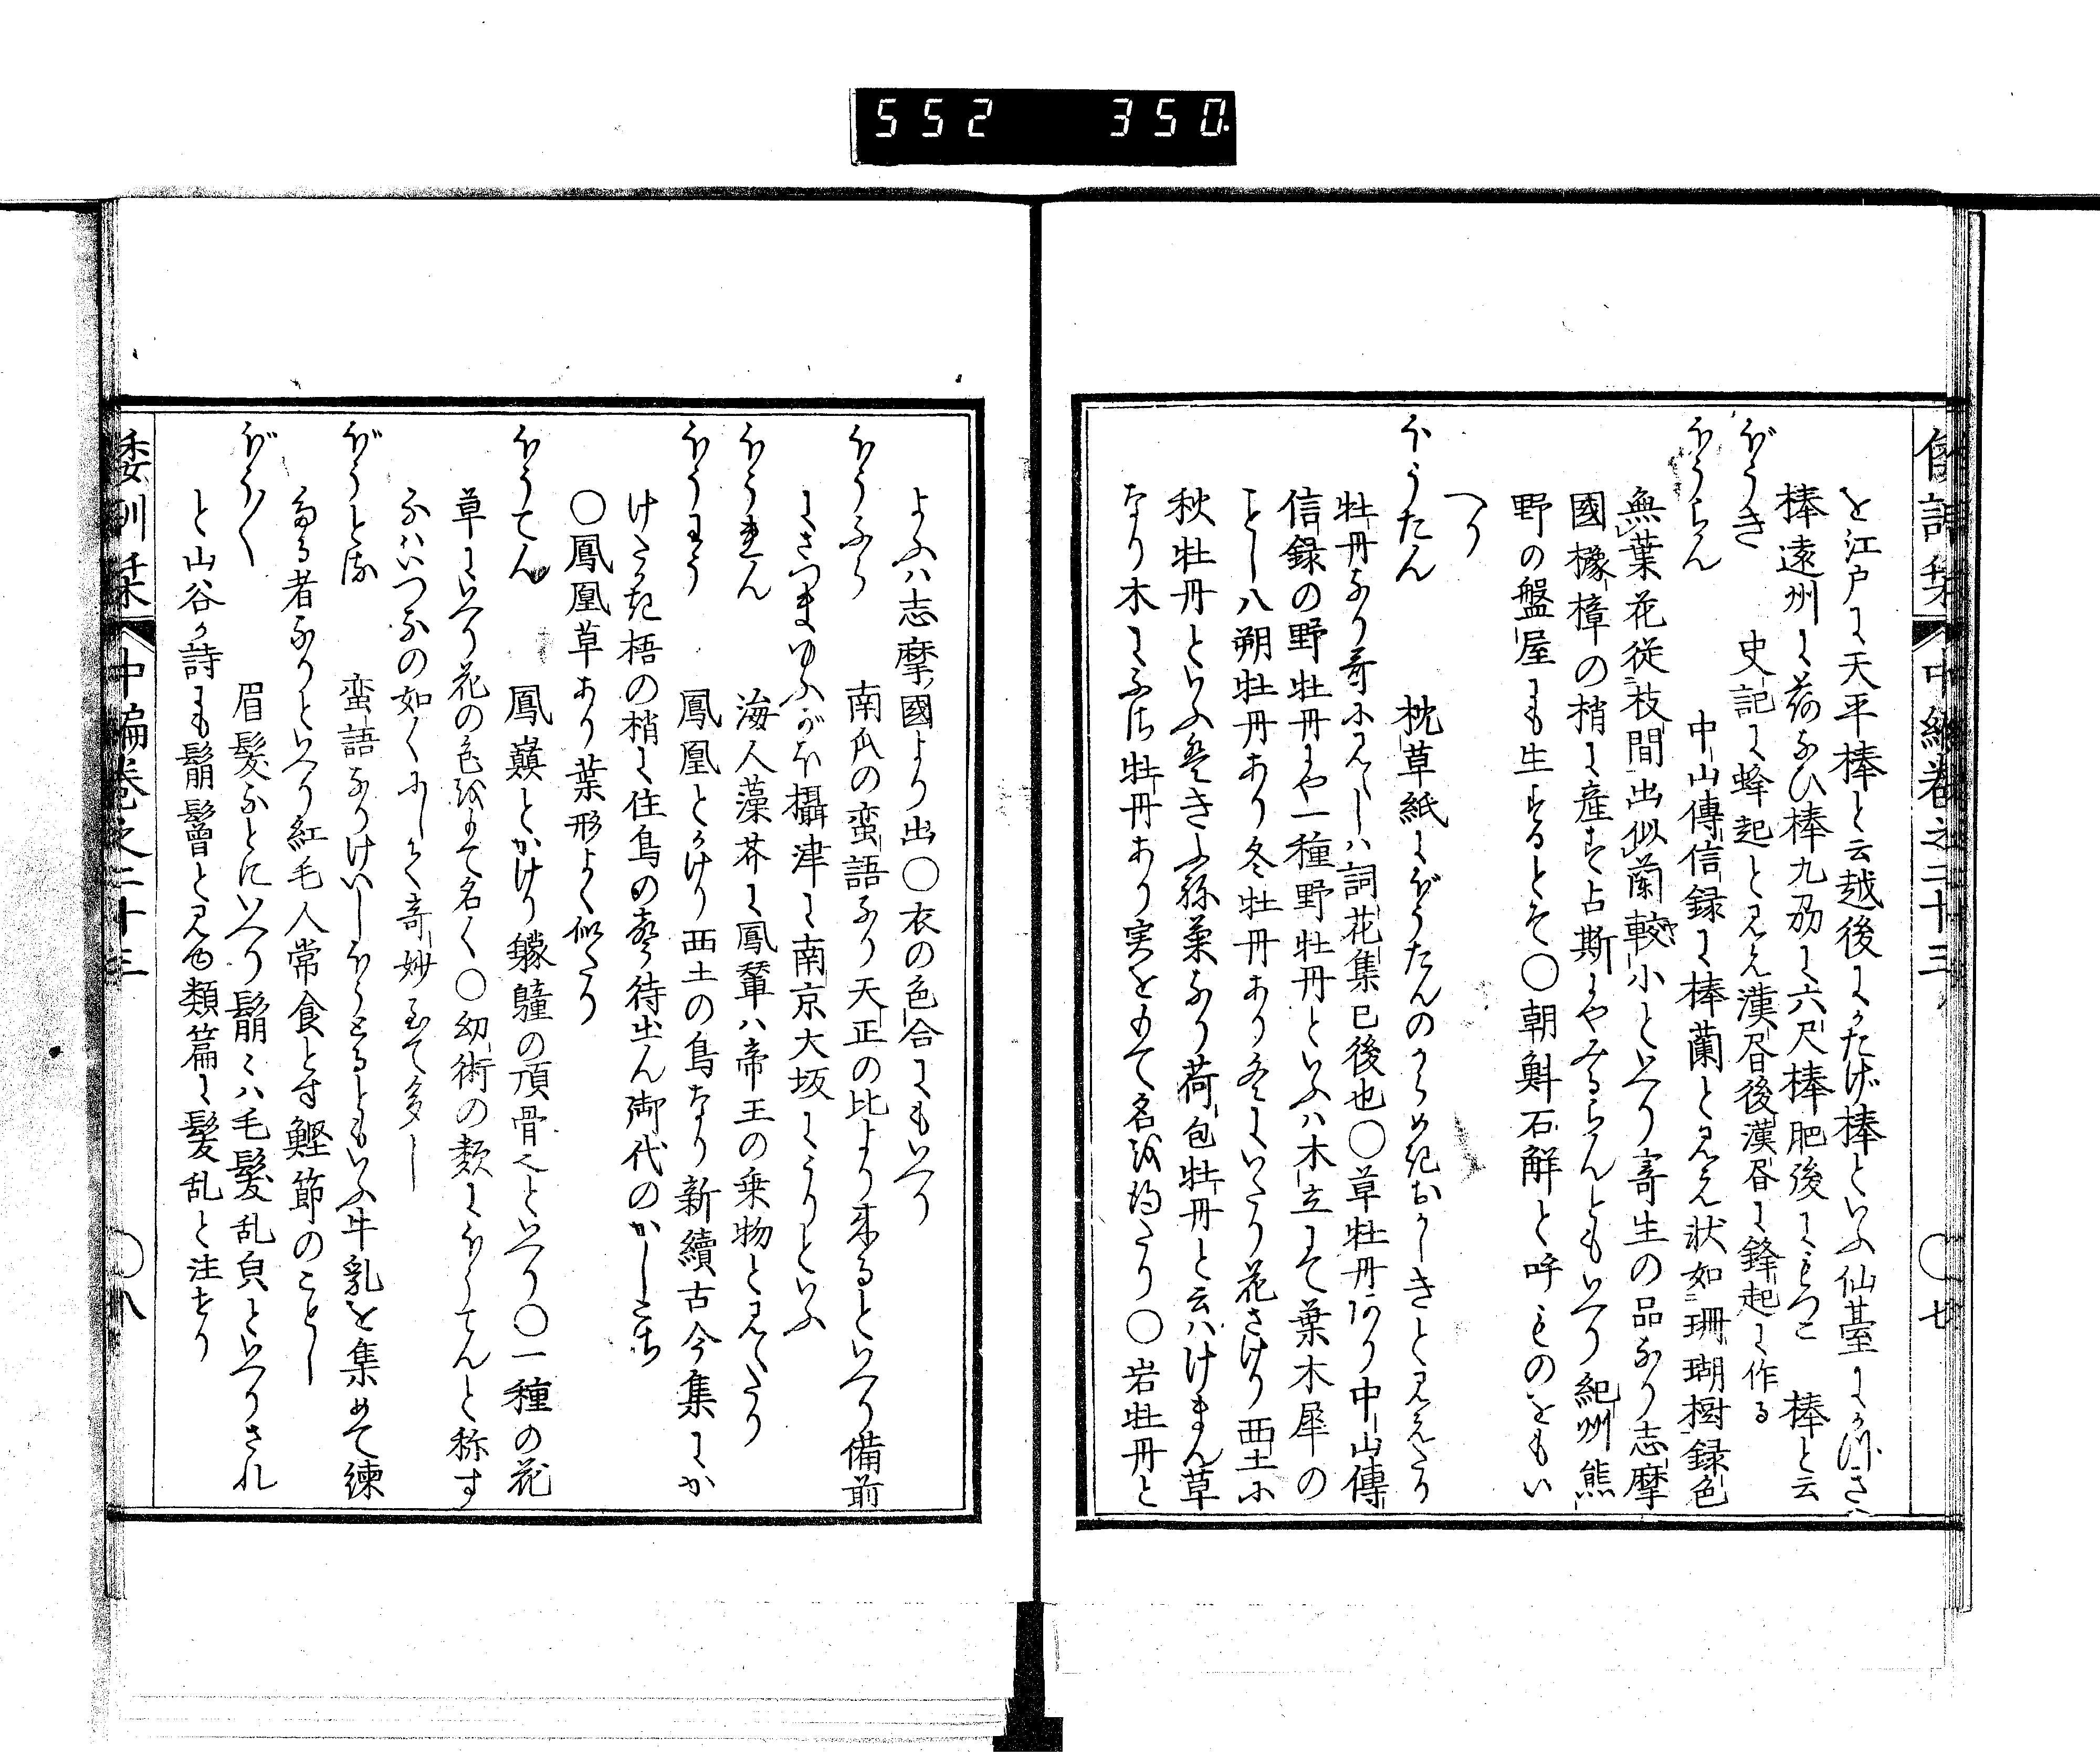 552 350
を江戸に天平棒と云越後にかたげ棒といふ仙臺にかつぎ
棒遠州に荷なひ棒九刕に六尺棒肥後に 棒と云
ぼうき 史記に蜂起と見え漢書後漢書に鋒起に作る
ほうらん 中山傳信録に棒蘭と見え状如珊瑚樹緑色
無葉花従枝間出似蘭較小といへり寄生の品なり志摩
國櫲樟の梢に産す占斯にやみるらんともいへり紀州熊
野の盤屋にも生するとそ○朝鮮石斛と呼ものをもい
へり
ぼうたん 枕草紙にぼうたんのからめきおかしきと見えたり
牡丹なり哥に見えしハ詞花集已後也○草牡丹あり中山傳
信録の野牡丹にや一種野牡丹といふハ木立にて葉木犀の
ことし八朔牡丹あり冬牡丹あり冬にいたり花さけり西土に
秋牡丹といふ冬きふね菊なり荷包牡丹と云ハけまん草
なり木にふぢ牡丹あり実をもて名を得たり○岩牡丹と
倭訓栞 中編巻之二十三 ○七
よふハ志摩國より出○衣の色合にもいへり
ほうふら 南瓜の蛮語なり天正の比より来るといへり備前
にさつまゆふがほ攝津に南京大坂にうりといふ
ほうれん 海人藻芥に鳳輦ハ帝王の乗物と見えたり
ほうわう 鳳凰とかけり西土の鳥なり新續古今集にか
けたかき梧の梢に住鳥の聲待出ん御代のかしこき
○鳳凰草あり葉形よく似たり
ほうてん 鳳巓とかけり驢の頂骨也といへり○一種の花
草にいへり花の色をもて名く○幻術の類にほうてんと称す
るハいつなの如くにして奇妙至て多し
ぼうとる 蛮語なりけいしほうとるともいふ牛乳を集めて煉
たる者なりといへり紅毛人常食とす鰹節のことし
ぼう〳〵 眉髪なとにいへり鬅々ハ毛髪乱皃といへりされ
と山谷か詩にも鬅鬙と見ゆ類篇に髪乱と注せり
倭訓栞 中編巻之二十三 ○八